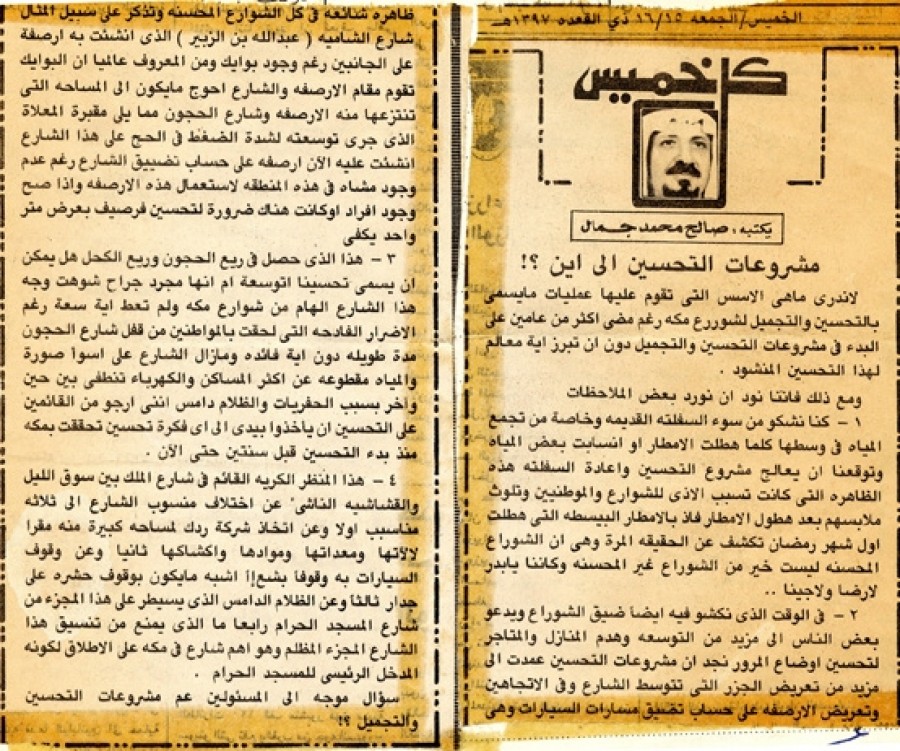 الخميس/الجمعه ١٦/١٥ ذي القعده ١٣٩٧هـ
كل خميس
يكتبه، صالح محمد جمال
مشروعات التحسين الى اين ؟!
لاندرى ماهى الاسس التى تقوم عليها عمليات مايسمى
بالتحسين والتجميل لشوررع مكه رغم مضى اكثر من عامين على
البدء فى مشروعات التحسين والتجميل دون ان تبرز اية معالم
لهذا التحسين المنشود .
ومع ذلك فانتا نود ان نورد بعض الملاحظات
١ – كنا نشكو من سوء السفلته القديمه وخاصة من تجمع
المياه فى وسطها كلما هطلت الامطار او انسابت بعض المياه
وتوقعنا ان يعالج مشروع التحسين واعادة السفلته هذه
الظاهره التى كانت تسبب الاذى للشوارع والموطنيين وتلوث
ملابسهم بعد هطول الامطار فاذ بالامطار البيسطه التى هطلت
اول شهر رمضان تكشف عن الحقيقه المرة وهى ان الشوراع
المحسنه ليست خير من الشوراع غير المحسنه وكاننا يابدر
لارضا ولاجينا ..
٢ – فى الوقت الذى نكشو فيه ايضاً ضيق الشوراع ويدعو
بعض الناس الى مزيد من التوسعه وهدم المنازل والمتاجر
لتحسين اوضاع المرور نجد ان مشروعات التحسين عمدت الى
مزيد من تعريض الجزر التى تتوسط الشارع وفى الاتجاهين
وتعريض الارصفه على حساب تضيق مسارات السيارات وهى
ظاهره شائعه فى كل الشوارع المحسنه وتذكر على سبيل المثال
شارع الشاميه ( عبدالله بن الزبير ) الذى انشئت به ارصفة
على الجانبين رغم وجود بوايك ومن المعروف عالميا ان البوايك
تقوم مقام الارصفه والشارع احوج مايكون الى المساحه التى
تنتزعها منه الارصفه وشارع الحجون مما يلى مقبرة المعلاة
الذى جرى توسعته لشدة الضغط فى الحج على هذا الشارع
انشئت عليه الآن ارصفه على حساب تضييق الشارع رغم عدم
وجود مشاه فى هذه المنطقه لاستعمال هذه الارصفه واذا صح
وجود افراد اوكانت هناك ضرورة لتحسين فرصيف بعرض متر
واحد يكفى
٣ – هذا الذى حصل فى ريع الحجون وريع الكحل هل يمكن
ان يسمى تحسينا اتوسعة ام انها مجرد جراح شوهت وجه
هذا الشارع الهام من شوارع مكه ولم تعط اية سعة رغم
الاضرار الفادحه التى لحقت بالمواطنين من قفل شارع الحجون
مدة طويله دون اية فائده ومازال الشارع على اسوأ صورة
والمياه مقطوعه عن اكثر المساكن والكهرباء تنطفى بين حين
وآخر بسبب الحفريات والظلام دامس اننى ارجو من القائمين
على التحسين ان ياخذوا بيدى الى اى فكرة تحسين تحققت بمكه
منذ بدء التحسين قبل سنتين حتى الآن .
٤ – هذا المنظر الكريه القائم فى شارع الملك بين سوق الليل
والقشاشيه الناشئ عن اختلاف منسوب الشارع الى ثلاثه
مناسيب اولا وعن اتخاذ شركة ردك لمساحه كبيرة منه مقرا
لآلاتها ومعداتها وموادها واكشاكها ثانيا وعن وقوف
السيارات به وقوفا بشعاً اشبه مايكون بوقوف حشره على
جدار ثالثاً وعن الظلام الدامس الذى يسيطر على هذا المجزء من
شارع المسجد الحرام رابعا ما الذى يمنع من تنسيق هذا
الشارع المجزء المظلم وهو اهم شارع فى مكه على الاطلاق لكونه
المدخل الرئيسى للمسجد الحرام .
سؤال موجه الى المسئولين عم مشروعات التحسين
والتجميل ؟؟